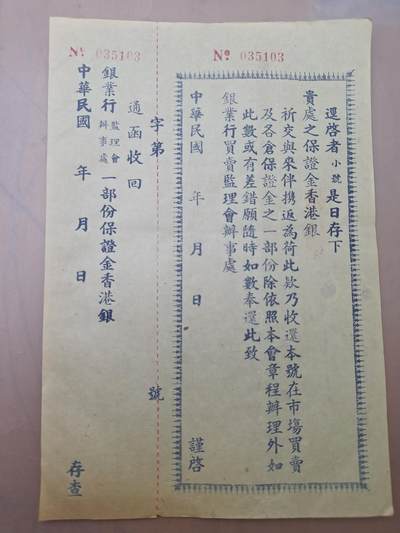 № 035103
逕啓者小號是日存下
貴處之保證金香港銀
祈交與來伴携返為荷此欵乃收還本號在市場買賣
及各倉保證金之一部份除依照本會章程辦理外如
此數或有差錯願隨時如數奉還此致
銀業行買賣監理會辦事處
中華民國 年 月 日 謹啓
字第 號
№ 035103
通函收回
銀業行監理會辦事處一部份保證金香港銀
中華民國 年 月 日 存查